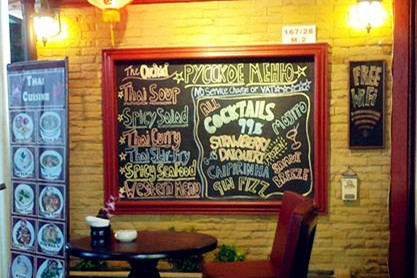 THAI
CUISINE
167/28
M.2
The Orchid
РУССКОЕ МЕНЮ
(NO Service Charge or VAT)
Thai Soup
Spicy Salad
Thai Curry
Thai Stir-Fry
Spicy Seafood
Western Menu
ALL
COCKTAILS
99฿
MOJITO
STRAWBERRY
DAIQUIRI
CAIPIRINHA
GIN FIZZ
BREEZE
FREE
WiFi